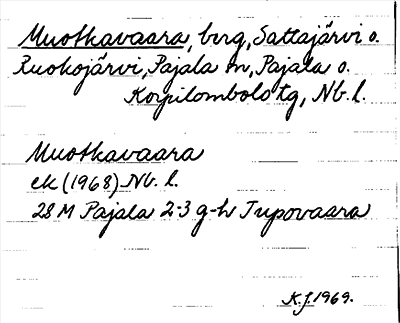 Muotkavaara, berg, Sattajärvi o.
Ruokojärvi, Pajala sn, Pajala o.
Korpilombolo tg, Nb. l.
Muotkavaara
ek (1968) Nb. l.
28 M Pajala 2-3 g-h Tupovaara
K.J. 1969.